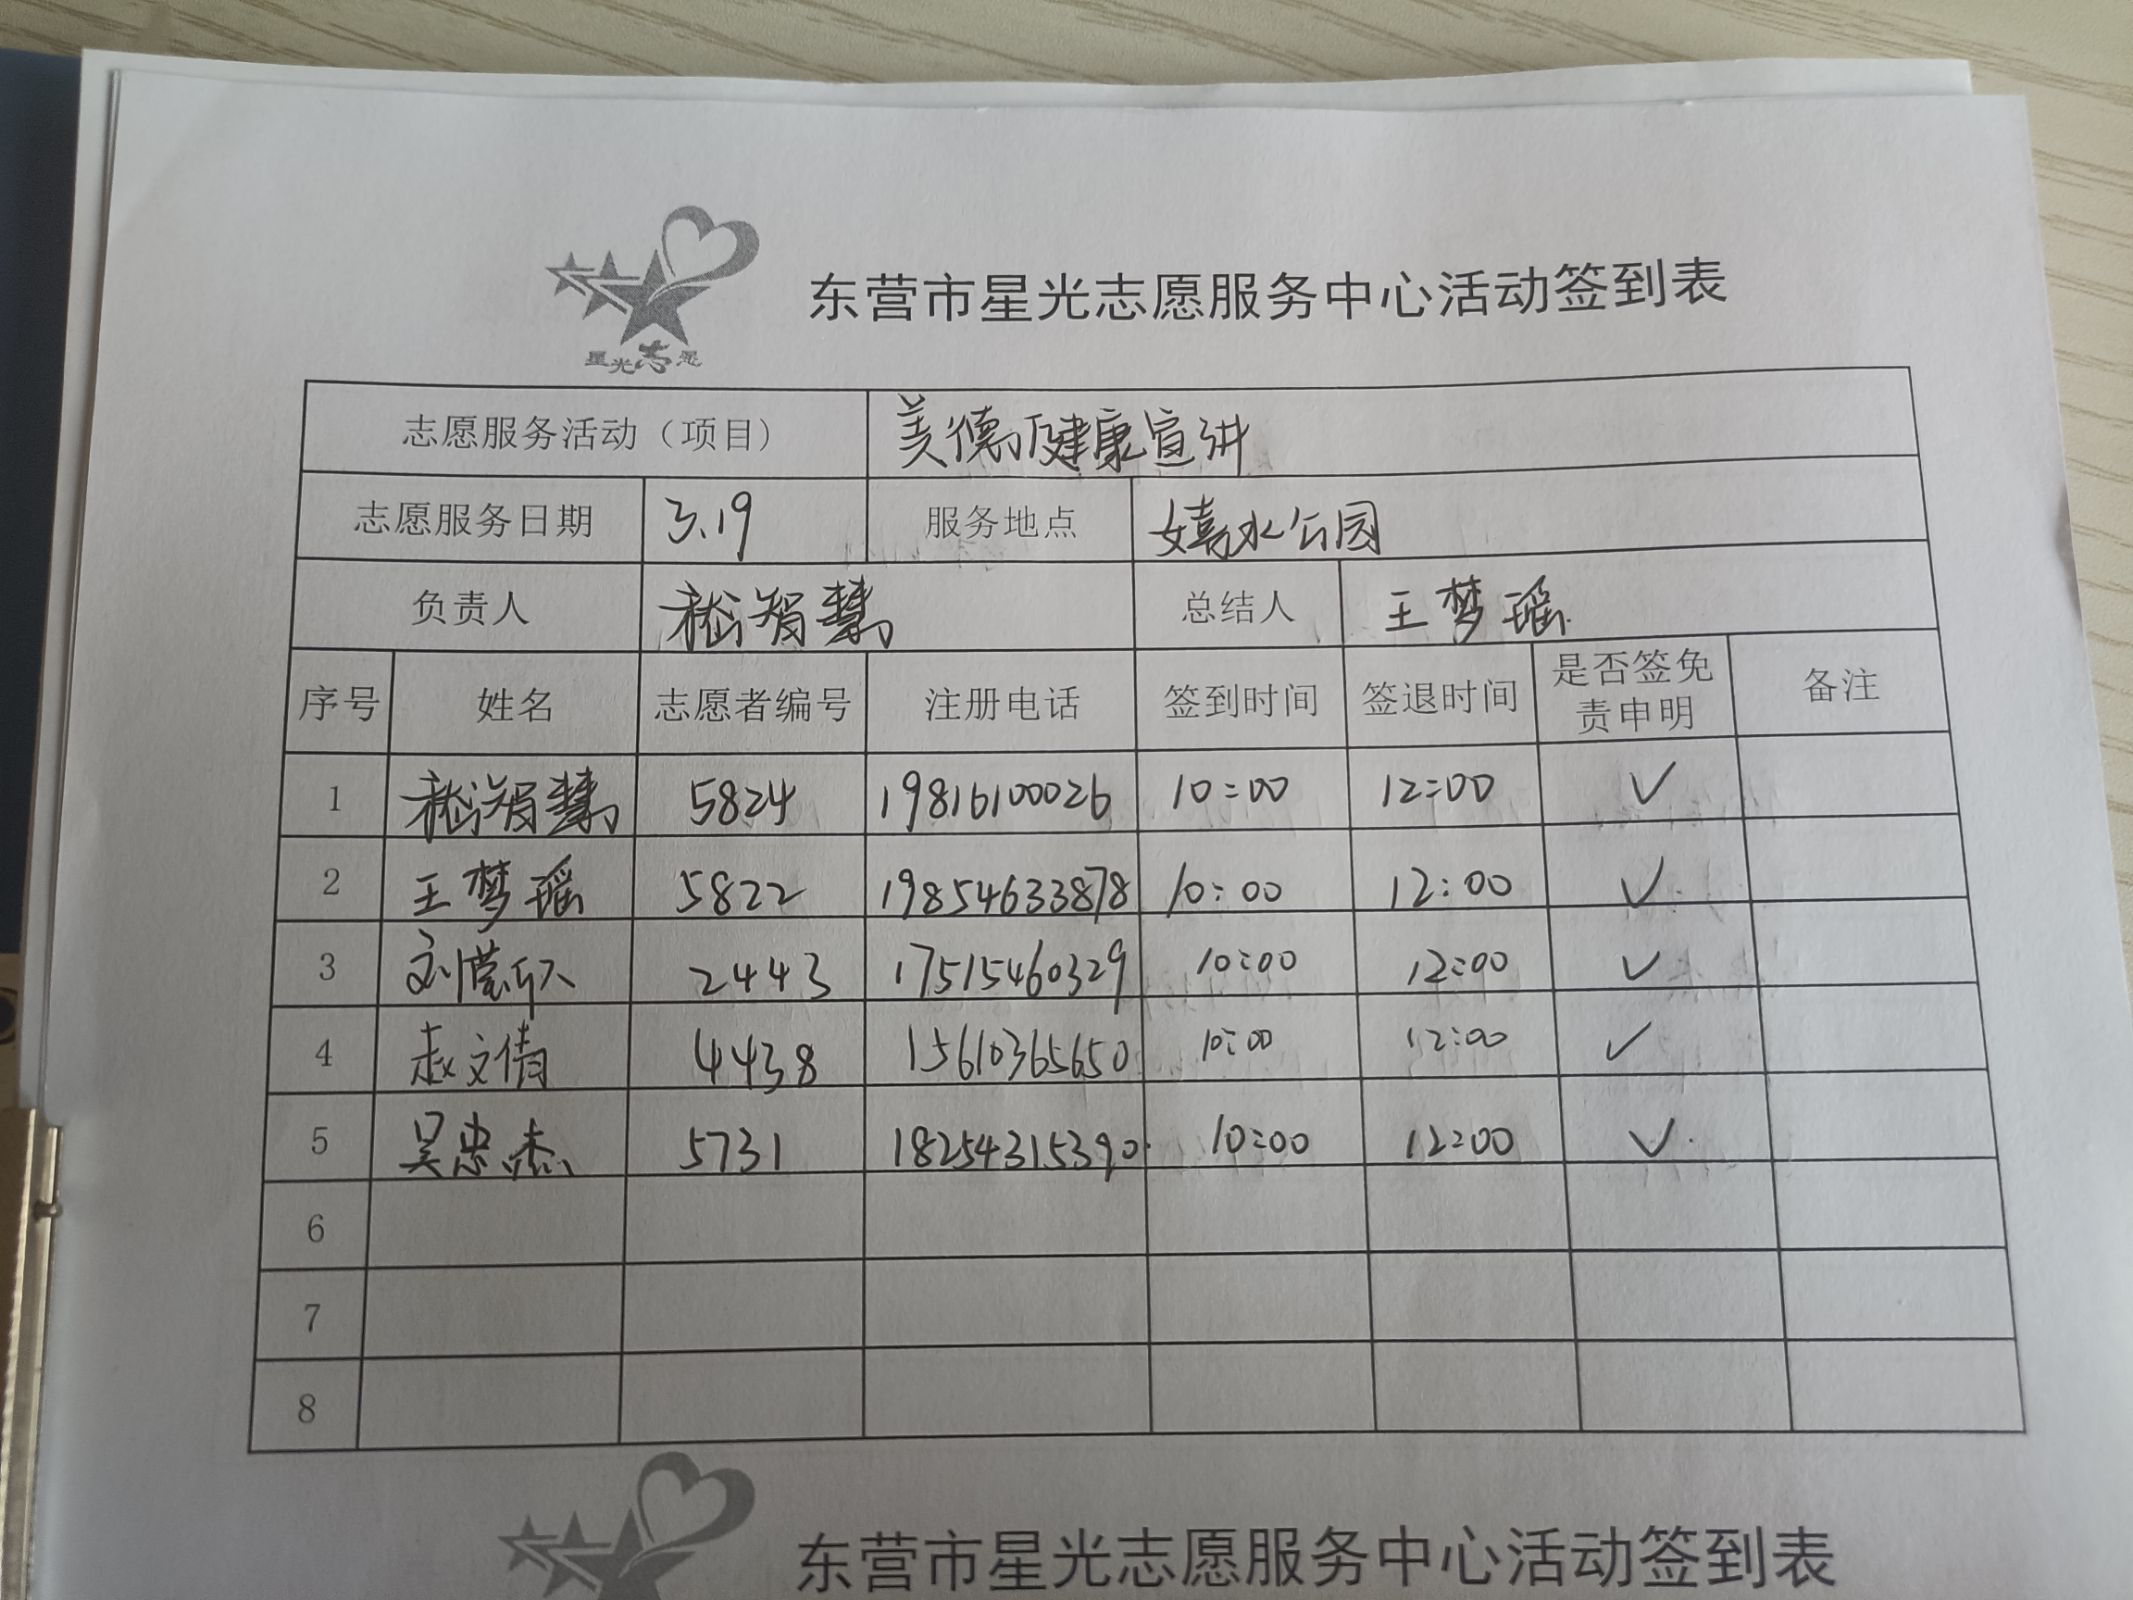 星光志愿
东营市星光志愿服务中心活动签到表
志愿服务活动（项目） 美德健康宣讲
志愿服务日期 3.19 服务地点 嬉水公园
负责人 嵇智慧 总结人 王梦瑶
序号 姓名 志愿者编号 注册电话 签到时间 签退时间 是否签免责申明 备注
1 嵇智慧 5824 19816100026 10:00 12:00 ✓
2 王梦瑶 5822 19854633878 10:00 12:00 ✓
3 刘 2443 17515460329 10:00 12:00 ✓
4 赵文倩 4438 15610365650 10:00 12:00 ✓
5 吴忠杰 5731 18254315390 10:00 12:00 ✓
6
7
8
东营市星光志愿服务中心活动签到表